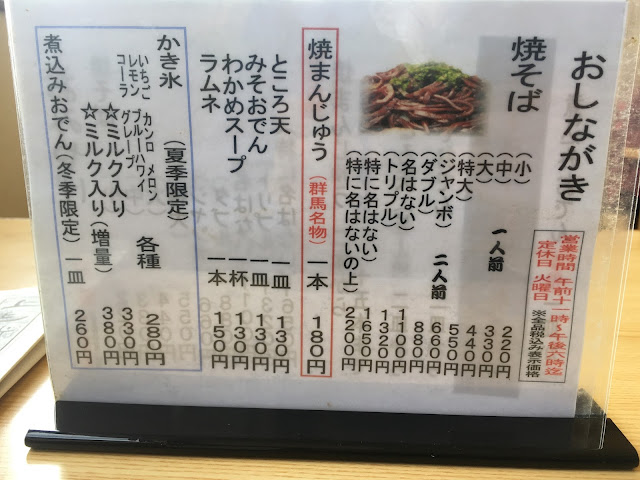 おしながき
営業時間 午前十一時~午後六時迄
定休日 火曜日 ※全品税込み表示価格
焼そば
(小) 220円
(中) 一人前 330円
(大) 440円
(特大) 550円
(ジャンボ) 二人前 660円
(ダブル) 880円
(名はない) 1100円
(トリプル) 1320円
(特に名はない) 1650円
(特に名はないの上) 2200円
焼まんじゅう(群馬名物) 一本 180円
ところ天 一皿 130円
みそおでん 一皿 130円
わかめスープ 一杯 130円
ラムネ 一本 150円
かき氷 (夏季限定)
いちご カンロ メロン 各種 280円
レモン ブルーハワイ
コーラ グレープ
☆ミルク入り 330円
☆ミルク入り(増量) 380円
煮込みおでん(冬季限定) 一皿 260円